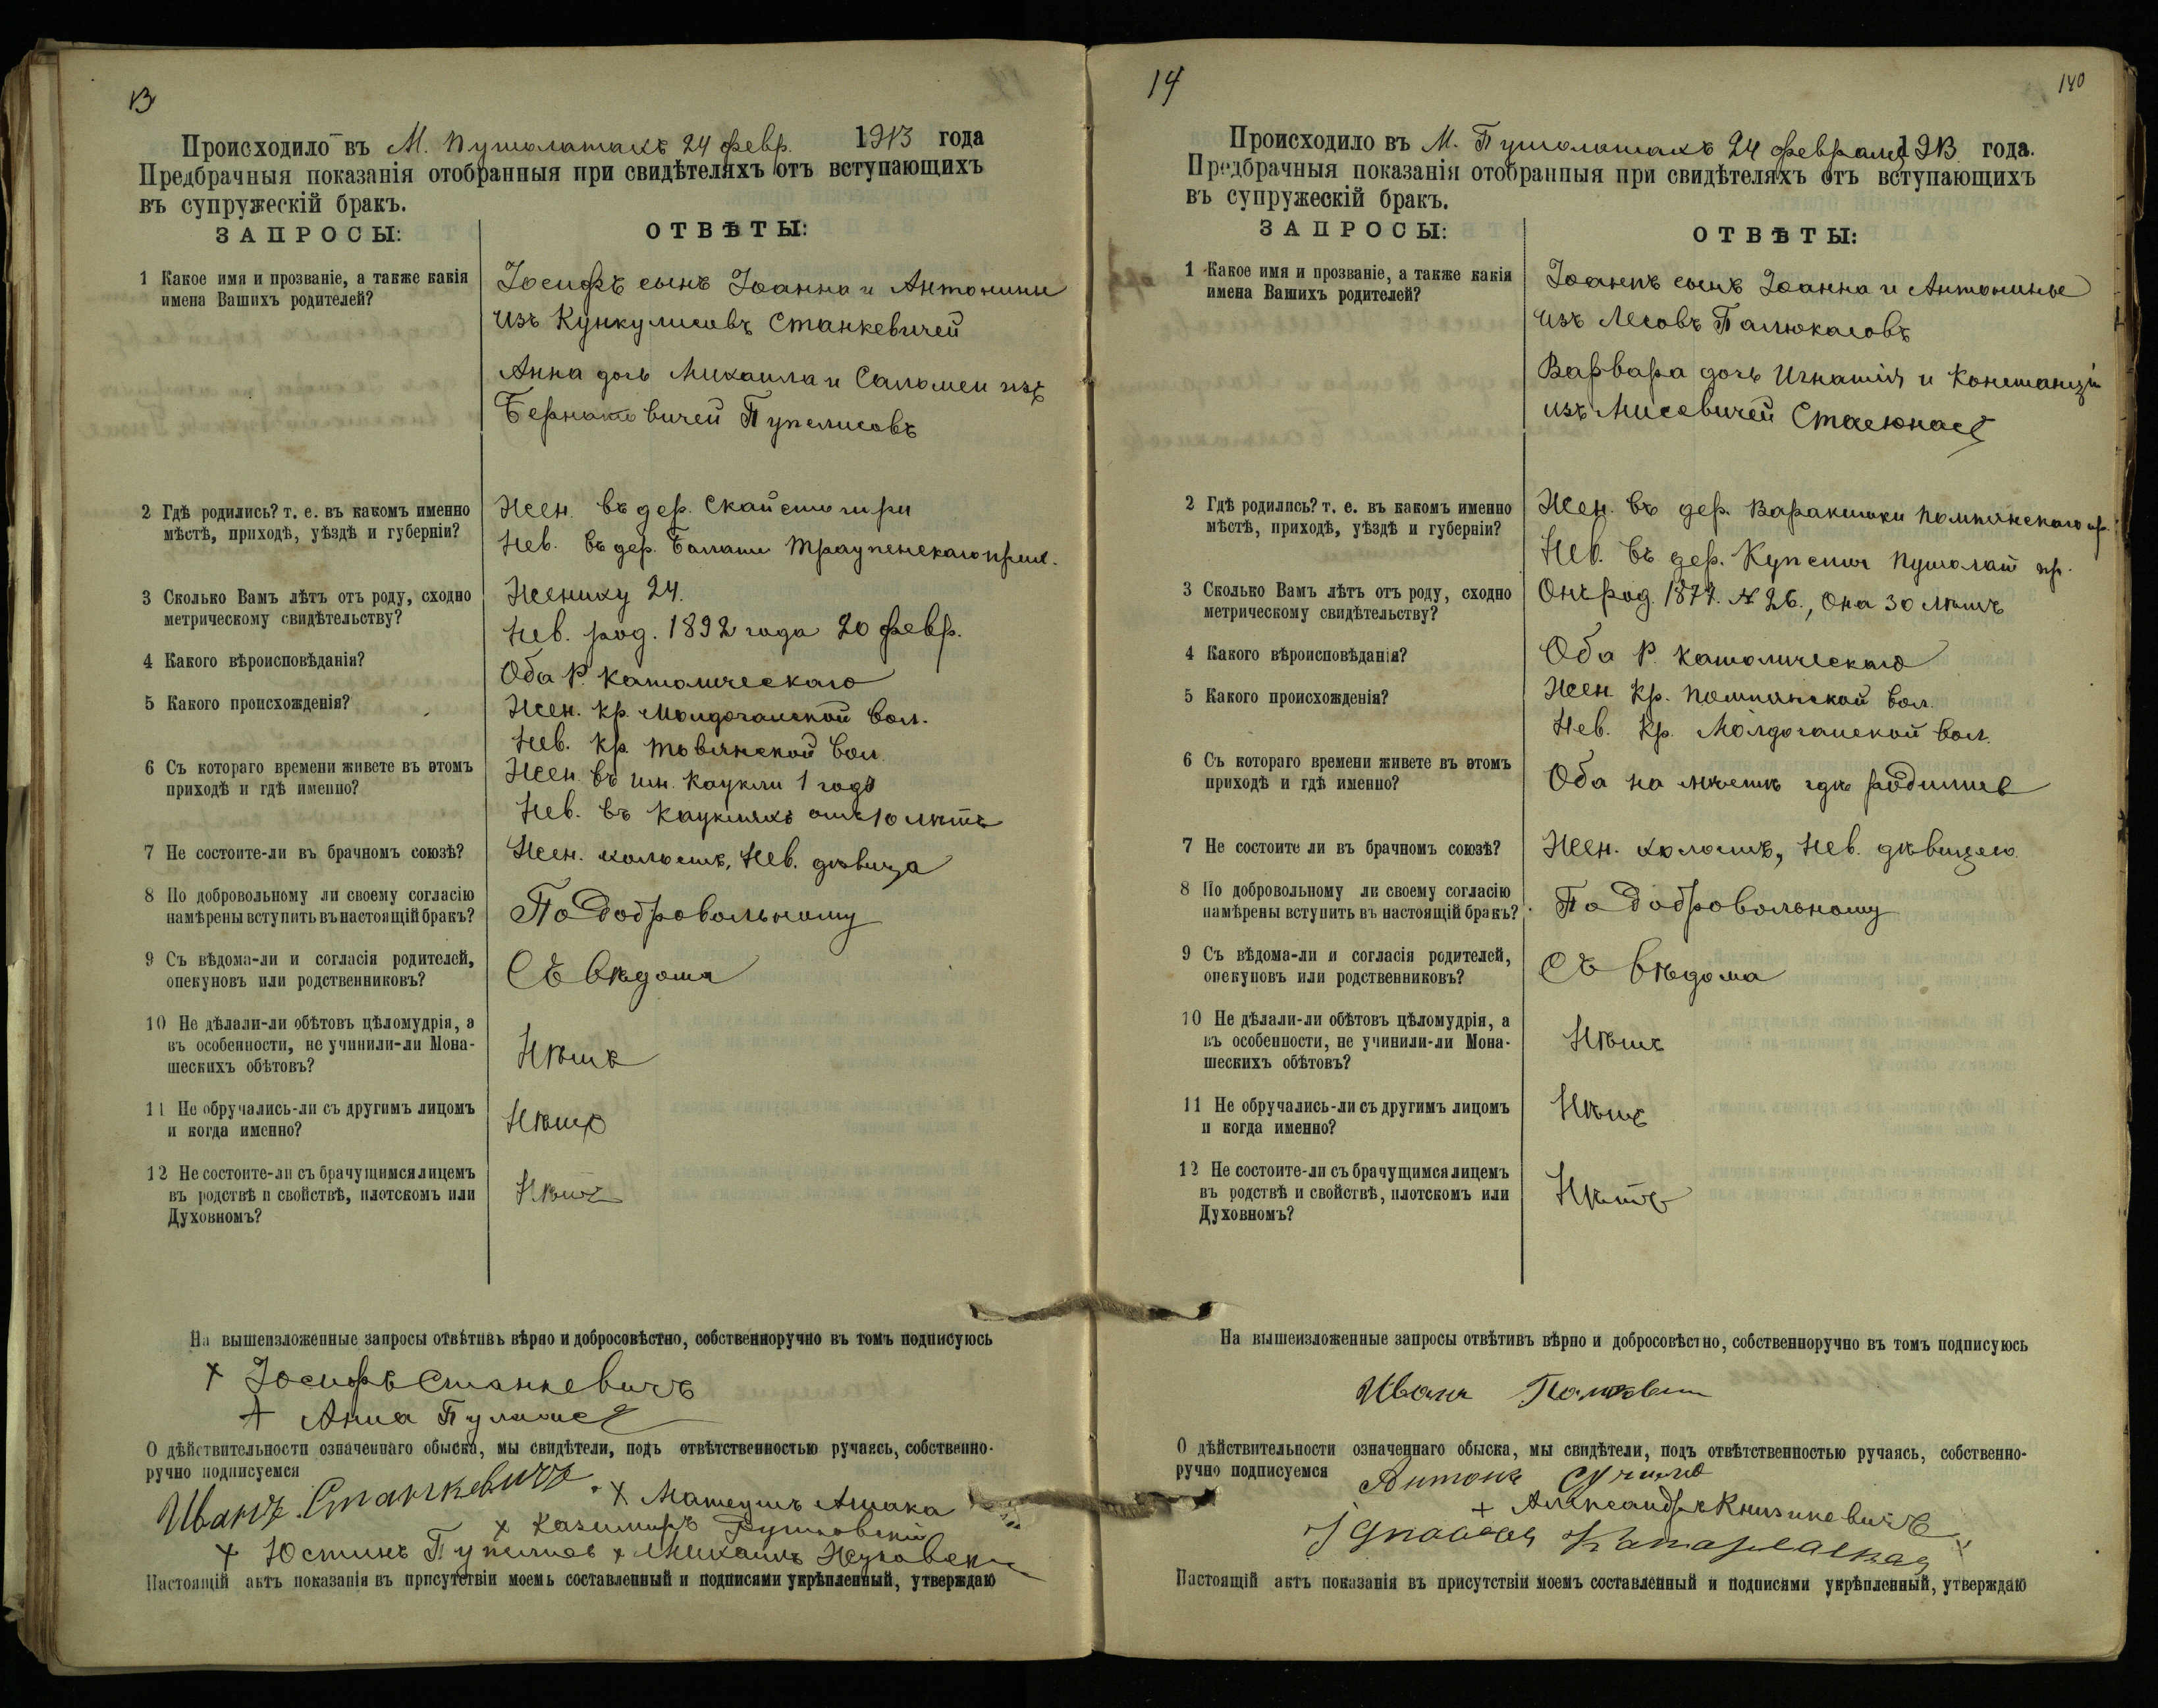 13
Происходило въ М. Пушолатахъ 24 февр. 1913 года
Предбрачныя показанія отобранныя при свидѣтеляхъ отъ вступающихъ
въ супружескій бракъ.
ЗАПРОСЫ:
ОТВѢТЫ:
1 Какое имя и прозваніе, а также какія
имена Вашихъ родителей?
Іосифъ сынъ Іоанна и Антонины
изъ Кункулисовъ Станкевичей
Анна дочь Михаила и Саломеи изъ
Бернатовичей Пупелисовъ
2 Гдѣ родились? т. е. въ какомъ именно
мѣстѣ, приходѣ, уѣздѣ и губерніи?
Жен. въ дер. Скайстогири
Нев. въ дер. Траупенскаго прих.
3 Сколько Вамъ лѣтъ отъ роду, сходно
метрическому свидѣтельству?
Жениху 24.
Нев. род. 1892 года 20 февр.
4 Какого вѣроисповѣданія?
Оба Р. Католическаго
5 Какого происхожденія?
Жен. кр. вол.
Нев. кр. Товянской вол.
6 Съ котораго времени живете въ этомъ
приходѣ и гдѣ именно?
Жен. въ им. Каукли 1 годъ
Нев. въ Каукляхъ отъ 10 лѣтъ
7 Не состоите-ли въ брачномъ союзѣ?
Жен. холостъ, Нев. дѣвица
8 По добровольному ли своему согласію
намѣрены вступить въ настоящій бракъ?
По добровольному
9 Съ вѣдома-ли и согласія родителей,
опекуновъ или родственниковъ?
Съ вѣдома
10 Не дѣлали-ли обѣтовъ цѣломудрія, а
въ особенности, не учинили-ли Мона-
шескихъ обѣтовъ?
Нѣтъ
11 Не обручались-ли съ другимъ лицомъ
и когда именно?
Нѣтъ
12 Не состоите-ли съ брачущимся лицемъ
въ родствѣ и свойствѣ, плотскомъ или
Духовномъ?
Нѣтъ
На вышеизложенные запросы отвѣтивъ вѣрно и добросовѣстно, собственноручно въ томъ подписуюсь
+ Іосифъ Станкевичъ
+ Анна
О дѣйствительности означеннаго обыска, мы свидѣтели, подъ отвѣтственностью ручаясь, собственно-
ручно подписуемся
Иванъ Станкевичъ. + Матеушъ
+ Казимиръ
+ Юстинъ + Михаилъ
Настоящій актъ показанія въ присутствіи моемъ составленный и подписями укрѣпленный, утверждаю
14
140
Происходило въ М. Пушолатахъ 24 февраля 1913 года.
Предбрачныя показанія отобранныя при свидѣтеляхъ отъ вступающихъ
въ супружескій бракъ.
ЗАПРОСЫ:
ОТВѢТЫ:
1 Какое имя и прозваніе, а также какія
имена Вашихъ родителей?
Іоаннъ сынъ Іоанна и Антонины
изъ Лесовъ Палюкасовъ
Варвара дочь Игнатія и Констанціи
изъ Мисевичей Стасюнасъ
2 Гдѣ родились? т. е. въ какомъ именно
мѣстѣ, приходѣ, уѣздѣ и губерніи?
Жен. въ дер. Помпянскаго пр.
Нев. въ дер. Пушолат пр.
3 Сколько Вамъ лѣтъ отъ роду, сходно
метрическому свидѣтельству?
Онъ род. 1877. № 26., Она 30 лѣтъ
4 Какого вѣроисповѣданія?
Оба Р. Католическаго
5 Какого происхожденія?
Жен кр. Помпянской вол.
Нев. кр. вол.
6 Съ котораго времени живете въ этомъ
приходѣ и гдѣ именно?
Оба на мѣстѣ гдѣ родились
7 Не состоите ли въ брачномъ союзѣ?
Жен. холостъ, Нев. дѣвицею
8 По добровольному ли своему согласію
намѣрены вступить въ настоящій бракъ?
По добровольному
9 Съ вѣдома-ли и согласія родителей,
опекуновъ или родственниковъ?
Съ вѣдома
10 Не дѣлали-ли обѣтовъ цѣломудрія, а
въ особенности, не учинили-ли Мона-
шескихъ обѣтовъ?
Нѣтъ
11 Не обручались-ли съ другимъ лицомъ
и когда именно?
Нѣтъ
12 Не состоите-ли съ брачущимся лицемъ
въ родствѣ и свойствѣ, плотскомъ или
Духовномъ?
Нѣтъ
На вышеизложенные запросы отвѣтивъ вѣрно и добросовѣстно, собственноручно въ томъ подписуюсь
Иванъ
О дѣйствительности означеннаго обыска, мы свидѣтели, подъ отвѣтственностью ручаясь, собственно-
ручно подписуемся
Антонъ
+ Александръ
Настоящій актъ показанія въ присутствіи моемъ составленный и подписями укрѣпленный, утверждаю